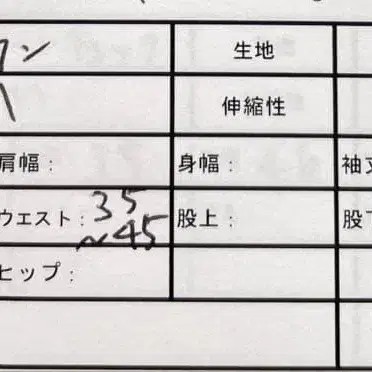 ン 生地
伸縮性
肩幅： 身幅： 袖丈
ウエスト：35 股上： 股下
～45
ヒップ：